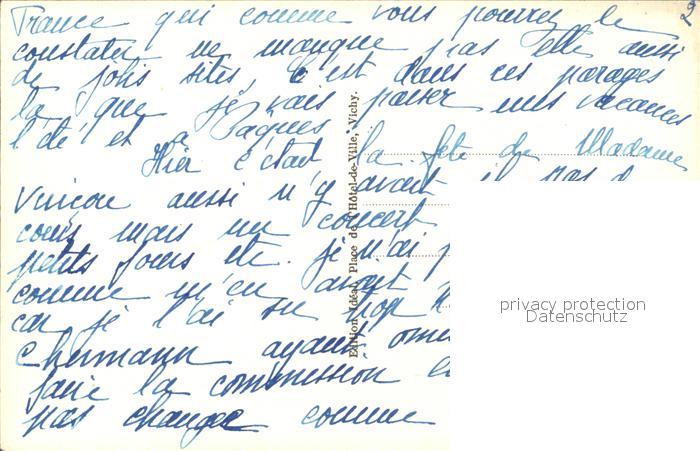 2
France qui comme vous pourrez le
constater ne manque pas elle aussi
de jolis sites, C'est dans ces parages
là que je vais passer mes vacances
l'été et à Pâques
Hier c'était la fête de Madame
aussi n'y avait il pas
cours mais un concert
petits fours etc. je n'ai
comme m'en avait
car je l'ai su trop
ayant omis
faire la commission
pas changer comme
Edition Idéal, Place de l'Hôtel-de-Ville, Vichy.
privacy protection
Datenschutz